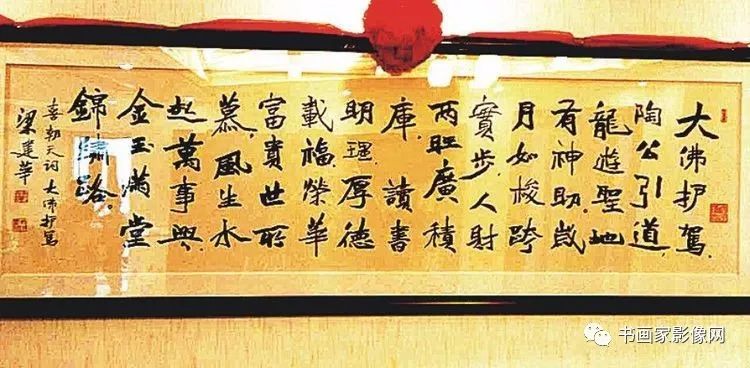 大佛护駕.
陶公引道,
龍遊聖地
有神助.歲
月如梭跨
實步.人財
两旺廣積
庫.讀書
明理.厚德
載福榮華
富貴世所
慕.風生水
起萬事興.
金玉滿堂
錦绣路.
天詞大佛护駕
梁建華
书画家影像网